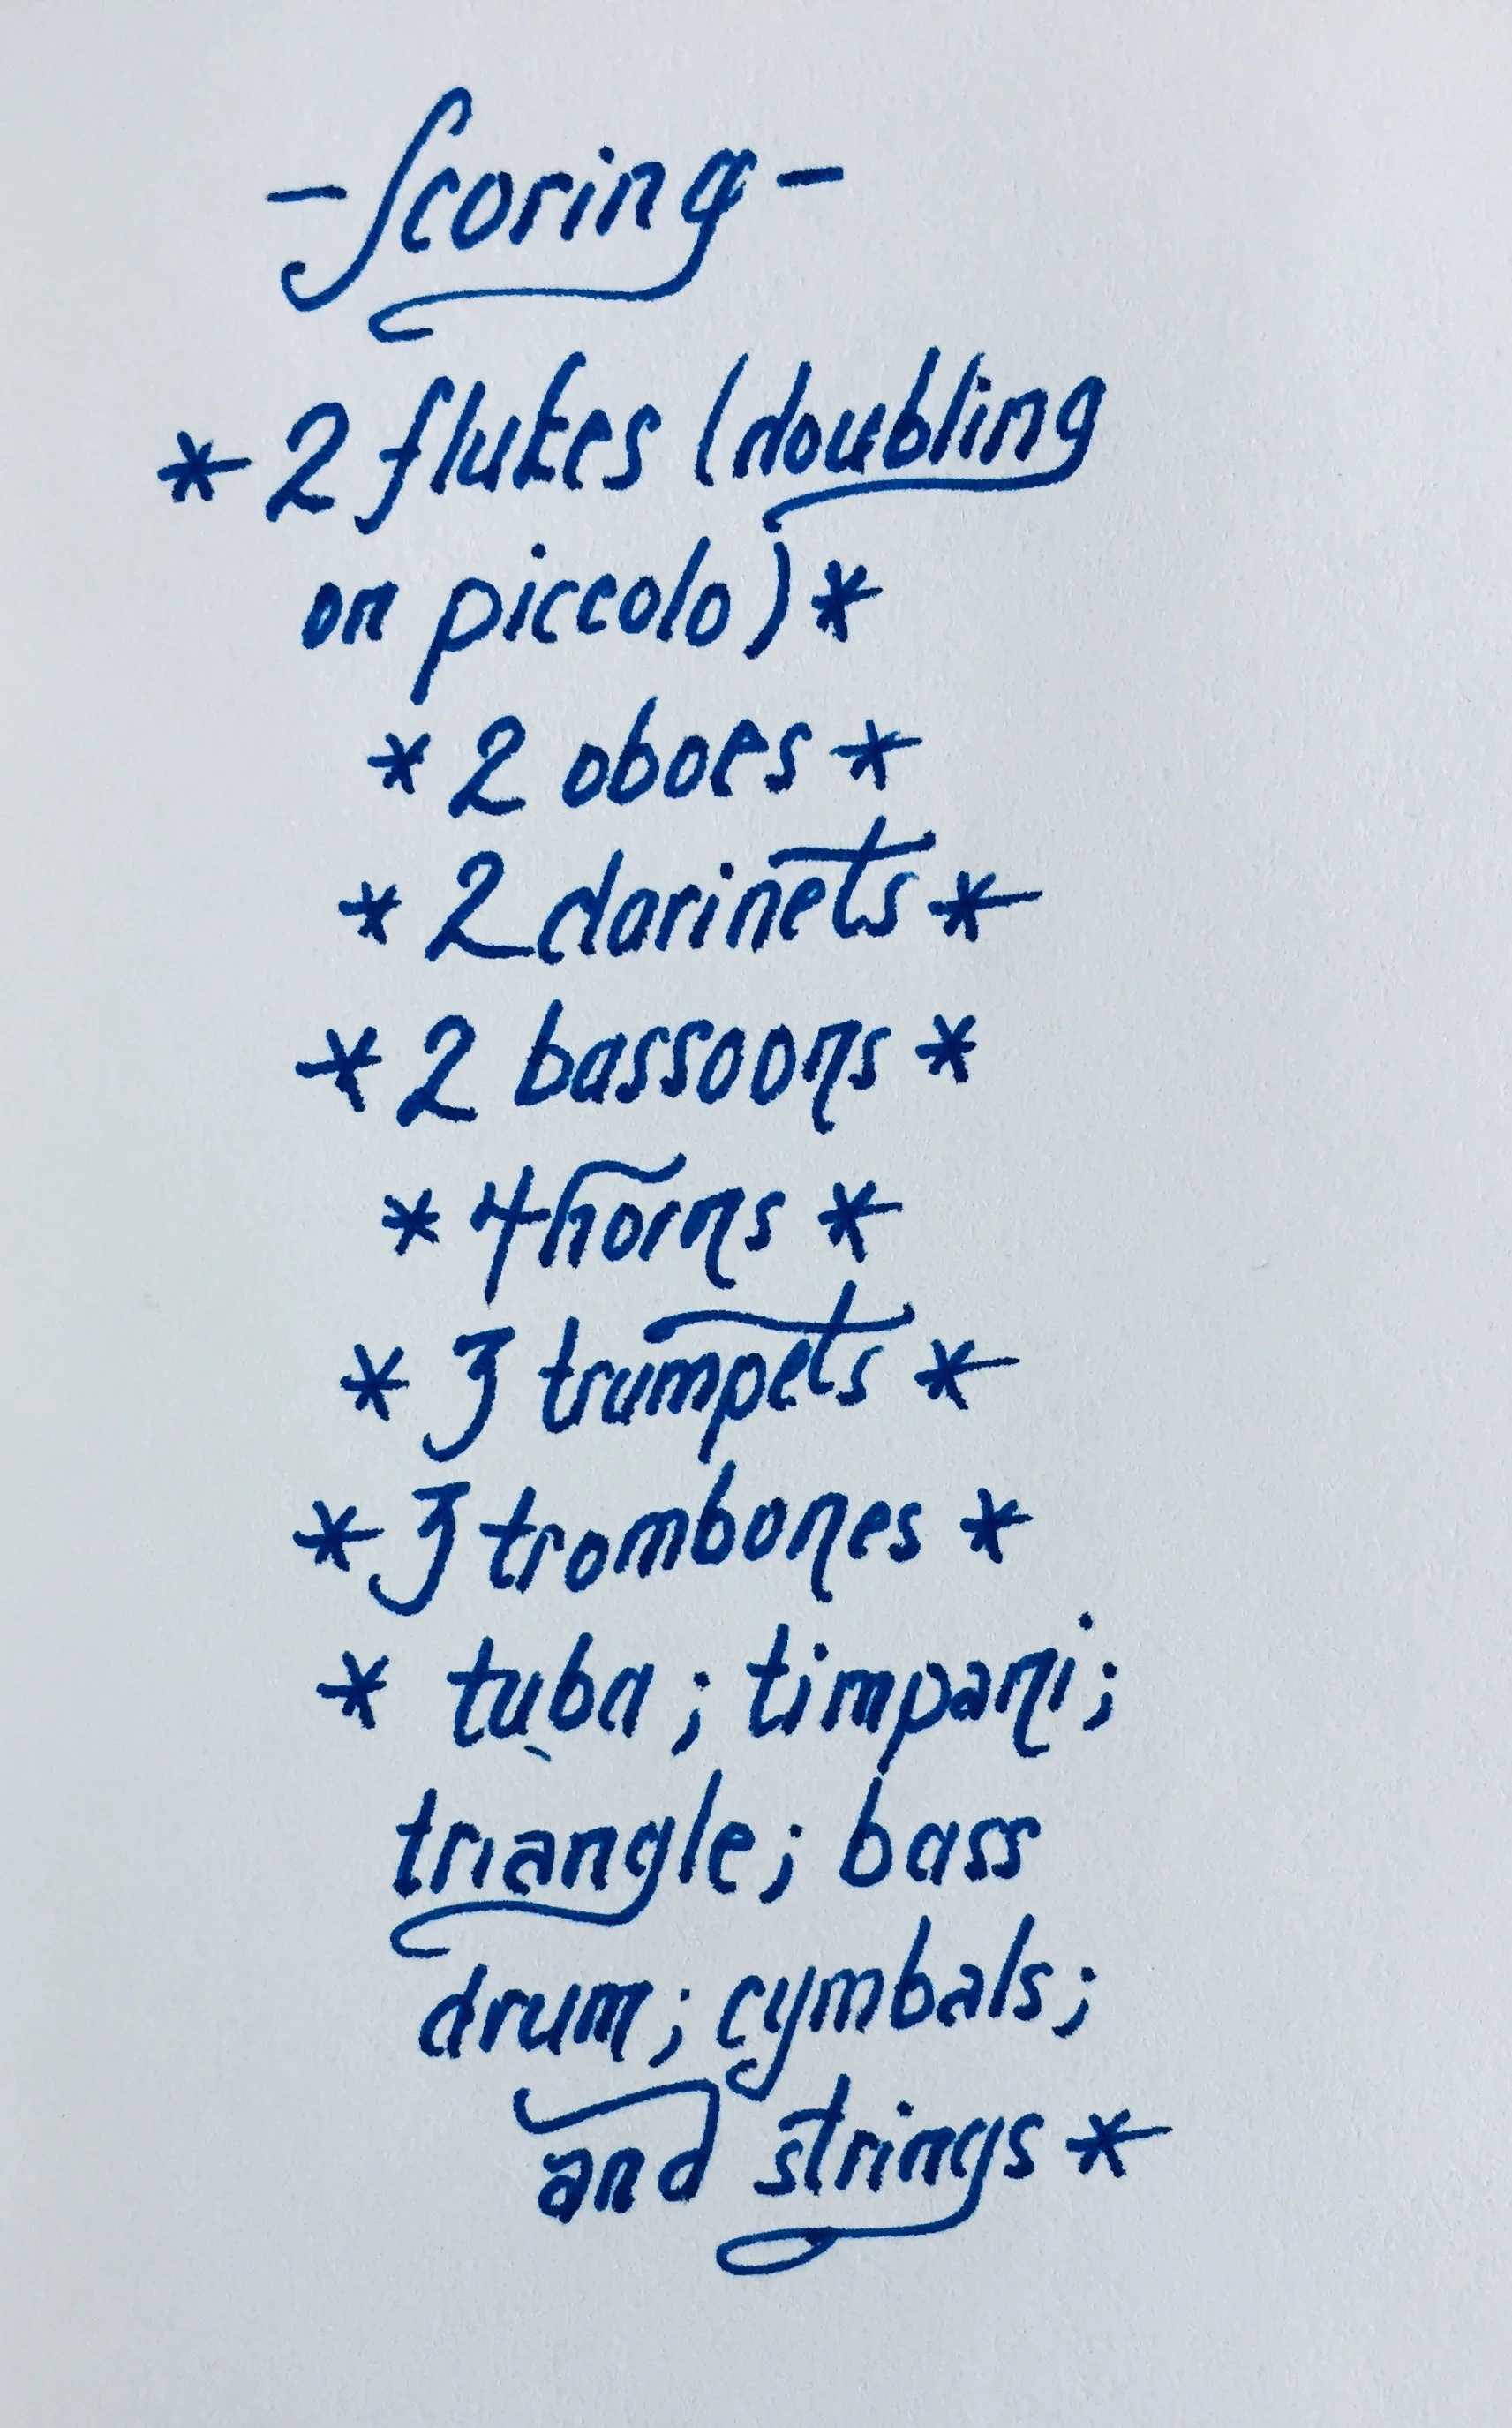 - Scoring -
* 2 flutes (doubling
on piccolo) *
* 2 oboes *
* 2 clarinets *
* 2 bassoons *
* 4 horns *
* 3 trumpets *
* 3 trombones *
* tuba; timpani;
triangle; bass
drum; cymbals;
and strings *